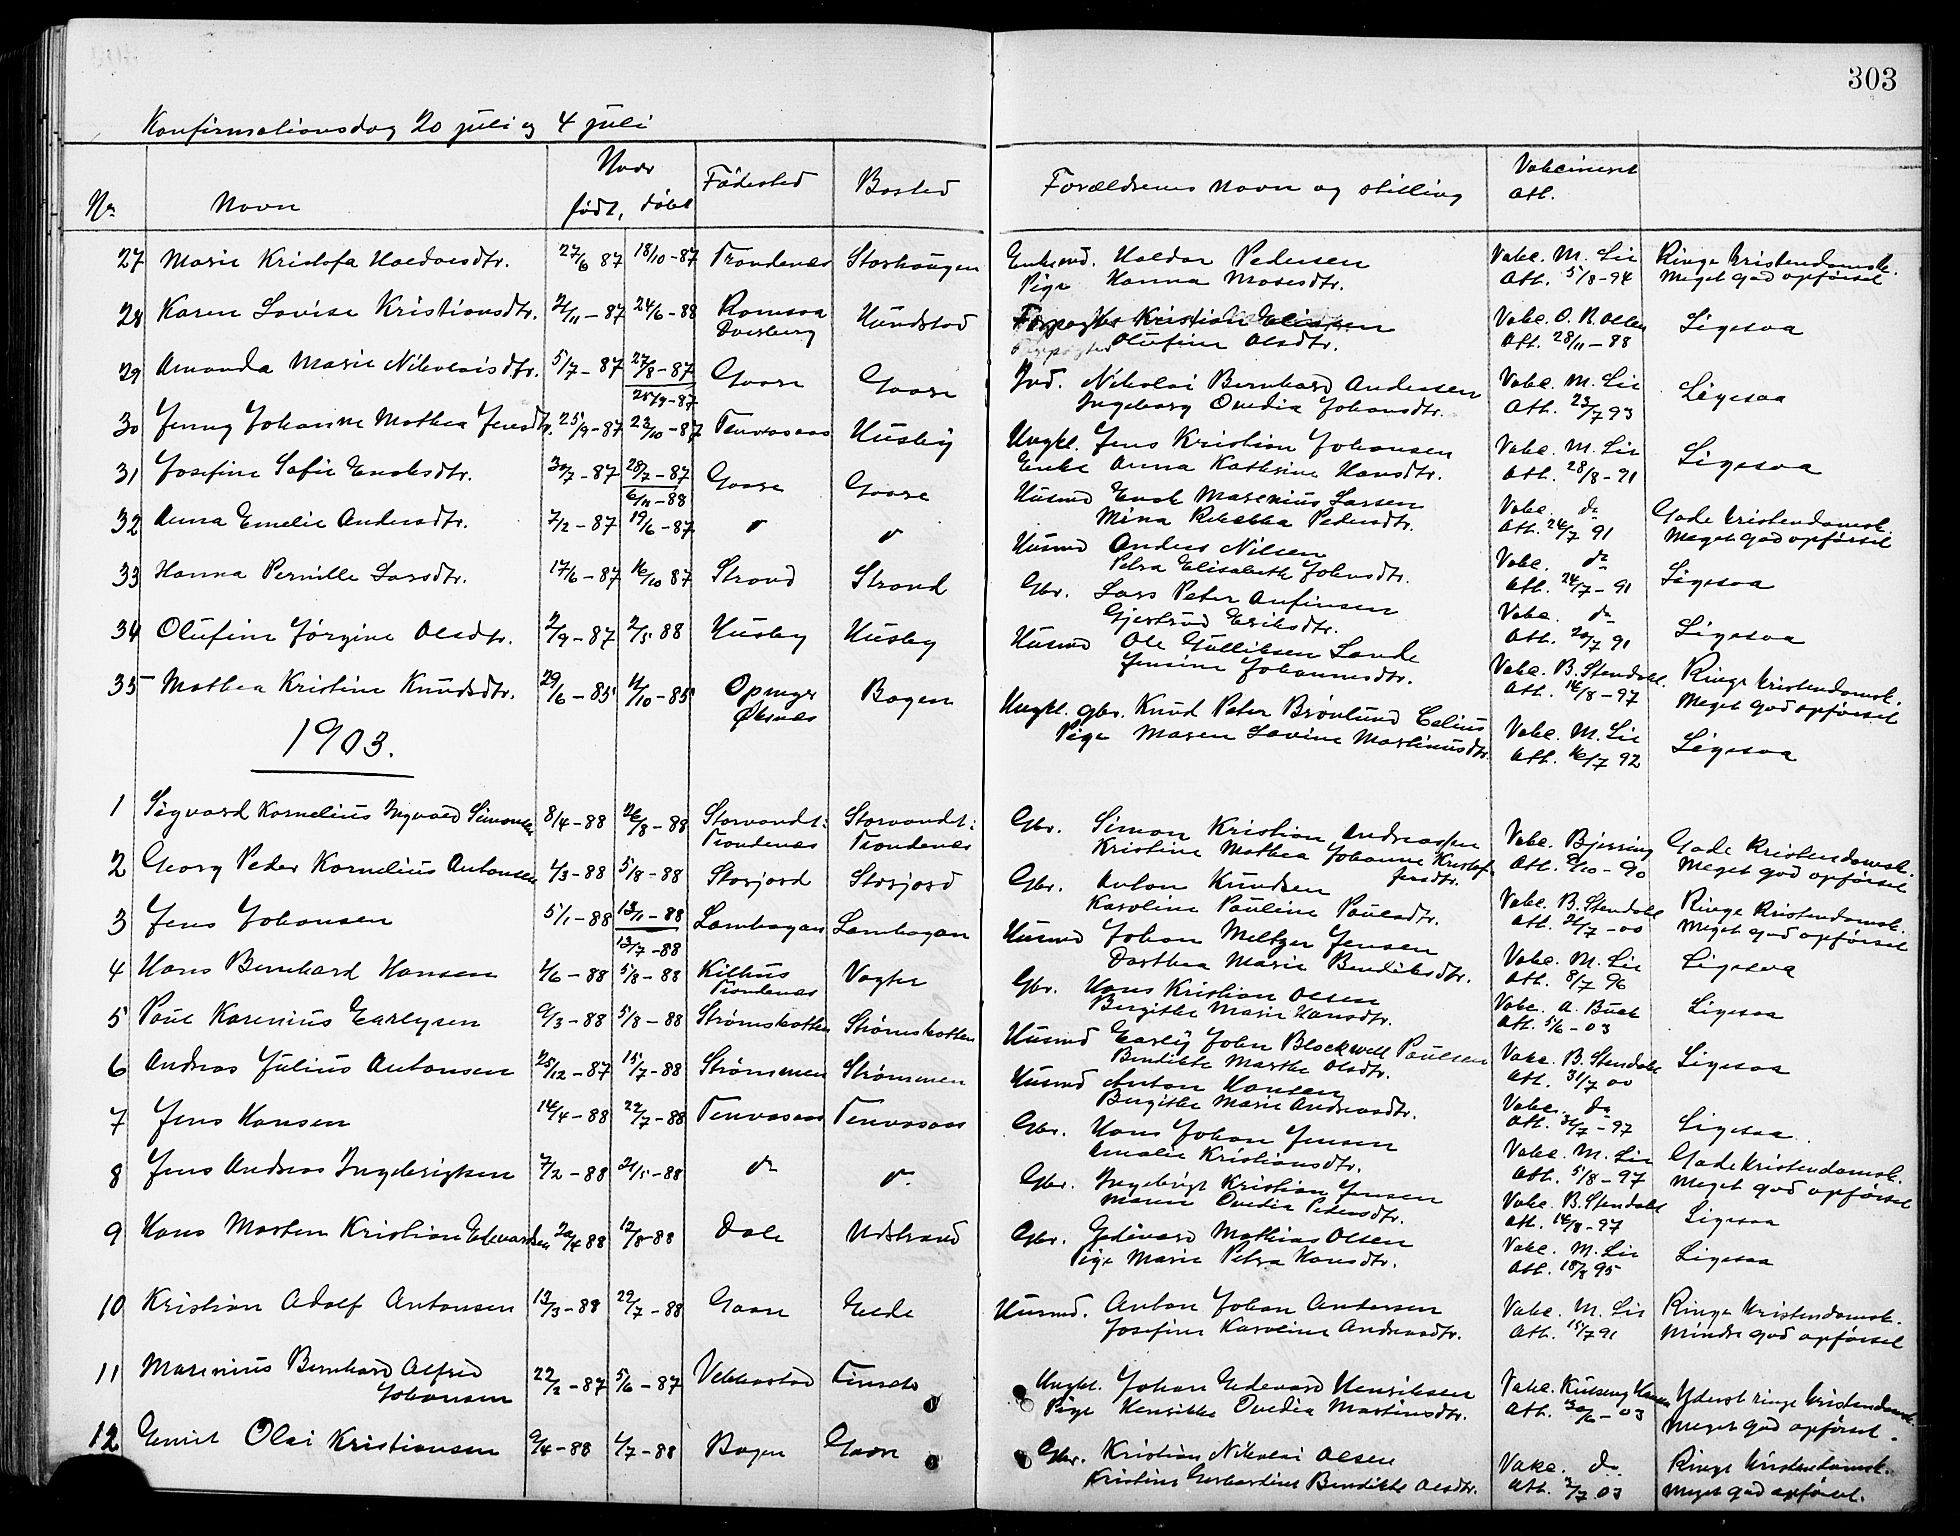 303
Konfirmationsdag 20 juli og 4 juli
No Navn Naar født, døbt Fødested Bosted Forældrenes navn og stilling Vakcineret Att.
27 Marie Kristofa Haldorsdtr. 27/6 87 18/10-87 Trondenes Storhaugen Enkemd. Haldor Pedersen Vakc. M. Lie Ringe kristendomsk.
Pige Hanna Mosesdtr. Att. 5/8-94 Meget god opførsel
28 Karen Lovise Kristiansdtr. 21/11-87 24/6-88 Ramsaa Hundstad Forpagter Kristian Eliassen Vakc. O. N. Olsen Ligesaa
Dverberg Olufine Olsdtr. Att. 28/11-88
29 Amanda Marie Nikolaisdtr. 5/7-87 27/8-87 Gaare Gaare Ind. Nikolai Bernhard Andersen Vakc. M. Lie Ligesaa
25/9-87 Ingeborg Ovedia Johansdtr. Att. 23/7 93
30 Jenny Johanne Mathea Jensdtr. 25/9-87 23/10-87 Tenvasaas Husby Ungkl. Jens Kristian Johansen Vakc. M. Lie Ligesaa
Enke Anna Kathrine Hansdtr. Att. 28/8-91
31 Josefine Sofie Enoksdtr. 30/7-87 28/7-87 Gaare Gaare Husmd Enok Marenius Larsen Vakc. do Gode kristendomsk.
6/11-88 Mina Rebekka Pedersdtr. Att. 24/7 91 Meget god opførsel
32 Anna Emelie Andersdtr. 7/2-87 19/6-87 " " Husmd Anders Nilsen Vakc. do Ligesaa
Petra Elisabeth Johnsdtr. Att. 24/7-91
33 Hanna Pernille Larsdtr. 17/6-87 16/10 87 Strand Strand Gbr. Lars Peter Anfinsen Vakc. do Ligesaa
Gjertrud Eriksdtr. Att. 20/7 91
34 Olufine Jørgine Olsdtr. 2/9-87 2/5 88 Husby Husby Husmd Ole Gulliksen Sande Vakc. B. Stendahl. Ringe kristendomsk.
Jensine Johannesdtr. Att. 14/8-97 Meget god opførsel
35 Mathea Kristine Knudsdtr. 29/6-85 11/10-85 Opnøyr Bogen Ungkl. gbr. Knud Peter Brønlund Celius Vakc. M. Lie Ligesaa
Øksnes Pige Maren Lovine Martinusdtr. Att. 16/7 92
1903.
1 Sigvard Kornelius Ingvald Simonsen 8/4-88 26/8-88 Storvandt: Storvandt: Gbr. Simon Kristian Andreassen Vakc. Bjerring Gode Kristendomsk.
Trondenes Trondenes Kristine Mathea Johanne Kristofersdtr. Att. 9/10-90 Meget god opførsel
2 Georg Peder Kornelius Antonsen 4/3-88 5/8-88 Storjord Storjord Gbr. Anton Knudsen Vakc. B. Stendahl Ringe Kristendomsk.
Karoline Pauline Paulsdtr. Att. 21/7-00 Meget god opførsel
3 Jens Johansen 5/1-88 13/1-88 Lambogan Lambogan Husmd Johan Meltzer Jensen Vakc. M. Lie Ligesaa
13/7-88 Dorthea Marie Bendiksdtr. Att. 8/7 96
4 Hans Bernhard Hansen 4/6-88 5/8-88 Kilhus Vogter Gbr. Hans Kristian Olsen Vakc. A. Buck Ligesaa
Trondenes Bergithe Marie Hansdtr. Att. 5/6-03
5 Paul Karenius Earlysen 9/3-88 5/8-88 Strømskotten Strømskotten Husmd Early John Blackwell Paulsen Vakc. B. Stendahl Ligesaa
Bendikte Marthe Olsdtr. Att. 31/7 00
6 Andreas Julius Antonsen 25/12-87 15/7-88 Strømmen Strømmen Husmd Anton Hansen Vakc. do Ligesaa
Bergithe Marie Andreasdtr. Att. 30/7-97
7 Jens Hansen 14/4-88 22/7-88 Tenvasaas Tenvasaas Gbr. Hans Johan Jensen Vakc. M. Lie Gode Kristendomsk.
Amalie Kristiansdtr. Att. 5/8-97 Meget god opførsel
8 Jens Andreas Ingebrigtsen 7/2-88 21/5-88 do " Gbr. Ingebrigt Kristian Jensen Vakc. B. Stendahl Ligesaa
Maren Ovedia Pedersdtr. Att. 14/8-97
9 Hans Morten Kristian Edevardsen 20/4 88 12/8-88 Dale Utstrand Gbr. Edevard Mathias Olsen Vakc. M. Lie Ligesaa
Pige Marie Petra Hansdtr. Att. 18/8 95
10 Kristian Adolf Antonsen 13/3-88 22/7-88 Gaare Elde Husmd. Anton Johan Andersen Vakc. M. Lie Ringe Kristendomsk.
Josefine Karoline Andreasdtr. Att. 15/7 91 Mindre god opførsel
11 Marenius Bernhard Alfred 22/2-87 5/6-87 Vebbestad Ungkl. Johan Edevard Henriksen Vakc. Yderst ringe kristendomsk.
Johansen Pige Henrikke Ovedia Martinsdtr. Att. 30/6-03 Meget god opførsel.
12 Emil Olai Kristiansen 9/4-88 1/7-88 Bogen Gaare Gbr. Kristian Nikolai Olsen Vakc. do. Ringe kristendomsk.
Kristine Gerhardine Bendikte Olsdtr. Att. 2/7 03 Meget god opførsel.